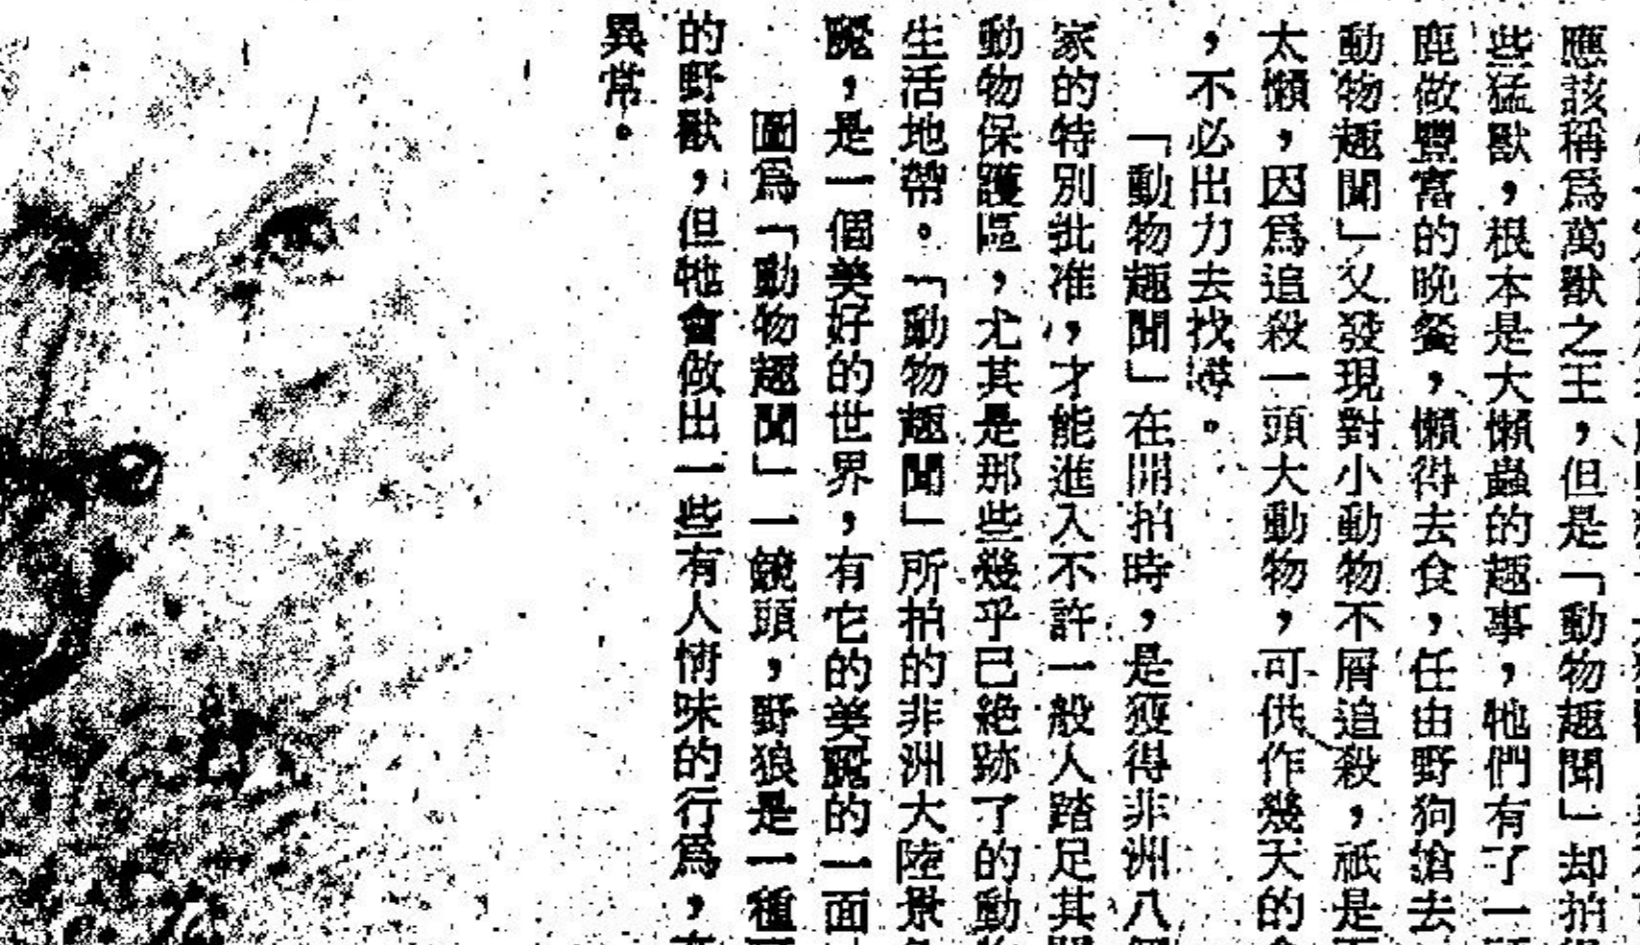 應該稱爲萬獸之王，但是「動物趣聞」却拍
些猛獸，根本是大懶蟲的趣事，牠們有了一
鹿做豐富的晚餐，懶得去食，任由野狗搶去
動物趣聞」又發現對小動物不屑追殺，祇是
太懶，因爲追殺一頭大動物，可供作幾天的
，不必出力去找尋。
「動物趣聞」在開拍時，是獲得非洲八
家的特別批准，才能進入不許一般人踏足其
動物保護區，尤其是那些幾乎已絶跡了的動
生活地帶。「動物趣聞」所拍的非洲大陸景
麗，是一個美好的世界，有它的美麗的一面
圖爲「動物趣聞」一鏡頭，野狼是一種
的野獸，但牠會做出一些有人情味的行爲，
異常。